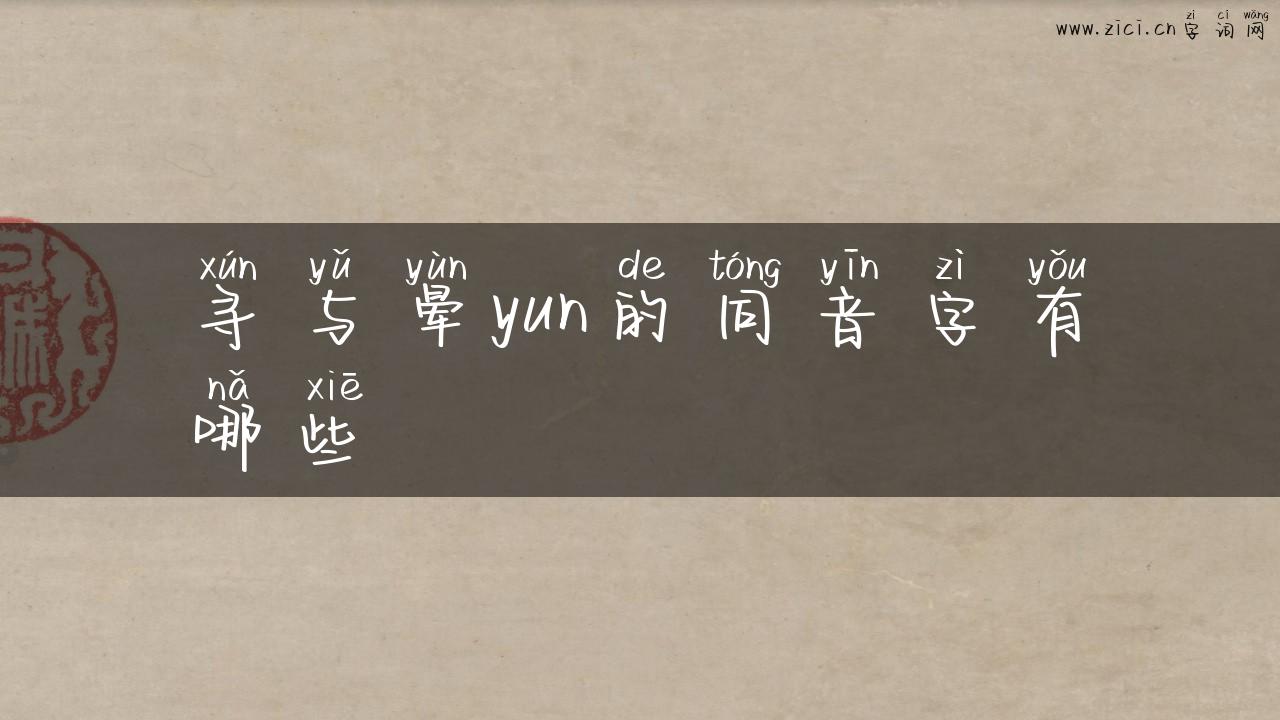 zì cí wǎng
www.zici.cn 字 词 网
xún yǔ yùn de tóng yīn zì yǒu
寻 与 晕 yun 的 同 音 字 有
nǎ xiē
哪 些